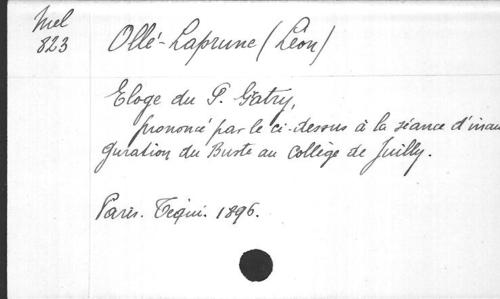 Mel
823
Ollé-Laprune (Léon)
Eloge du P. Gatry,
prononcé par le ci-dessus à la séance d'inau
guration du Buste au Collège de Juilly.
Paris. Téqui. 1896.